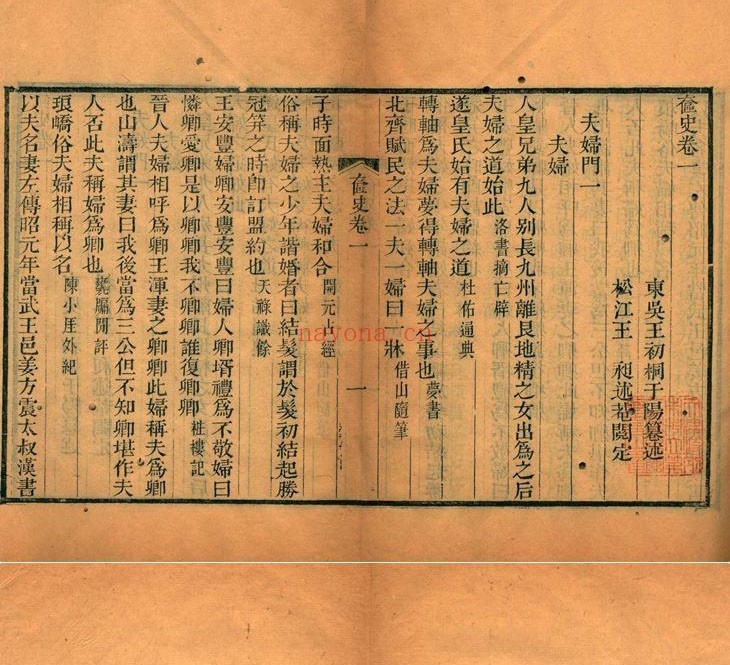 奩史卷一
東吳王初桐于陽纂述
松江王　昶述菴閱定
夫婦門一
夫婦
人皇兄弟九人別長九州離艮地精之女出爲之后
夫婦之道始此洛書摘亡辟
遂皇氏始有夫婦之道杜佑通典
轉軸爲夫婦夢得轉軸夫婦之事也夢書
北齊賦民之法一夫一婦曰一牀借山隨筆
奩史卷一
一
子時面熱主夫婦和合開元占經
俗稱夫婦之少年諧婚者曰結髮謂於髮初結起勝
冠笄之時卽訂盟約也天祿識餘
王安豐婦卿安豐安豐曰婦人卿壻禮爲不敬婦曰
憐卿愛卿是以卿卿我不卿卿誰復卿卿粧樓記
晉人夫婦相呼爲卿王渾妻之卿卿此婦稱夫爲卿
也山濤謂其妻曰我後當爲三公但不知卿堪作夫
人否此夫稱婦爲卿也甕牖閒評
琅嶠俗夫婦相稱以名陳小厓外紀
以夫名妻左傳昭元年當武王邑姜方震太叔漢書
nayona.cn